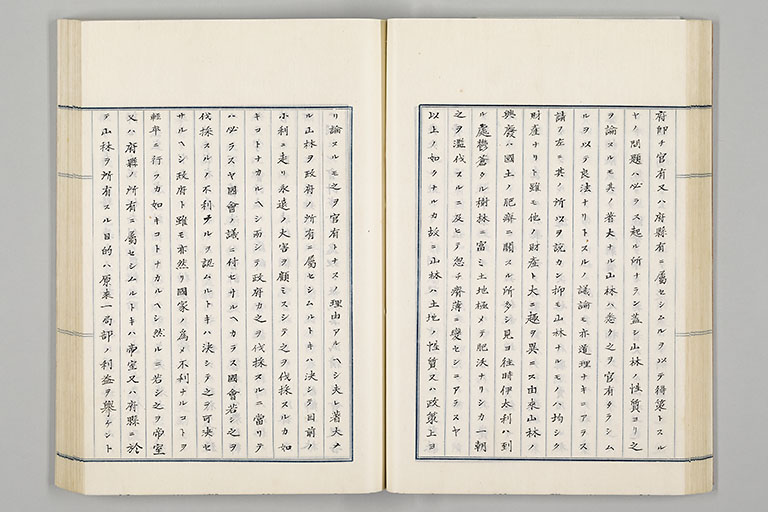 府卽チ官有又ハ府縣有ニ屬セシムルヲ以テ得策トスル
ヤノ問題ハ必ラス起ル所ナラン蓋シ山林ノ性質ヨリ之
ヲ論スルモ其ノ著大ナル山林ハ悉ク之ヲ官有タラシム
ルヲ以テ良法ナリトスルノ議論モ亦道理ナキニアラス
請フ左ニ其ノ所以ヲ說カン抑モ山林ナルモノハ均シク
財產ナリト雖モ他ノ財產ト大ニ趣ヲ異ニス由來山林ノ
興廢ハ國土ノ肥瘠ニ關スル所多シ見ヨ往時伊太利ハ到
ル處鬱蒼タル樹林ニ富ミ土地極メテ肥沃ナリシカ一朝
之ヲ濫伐スルニ及ヒテ忽チ瘠薄ニ變セシニアラスヤ
以上ノ如クナルカ故ニ山林ハ土地ノ性質又ハ政策上ヨ
リ論スルモ之ヲ官有トナスノ理由アルヘシ夫レ著大ナ
ル山林ヲ政府ノ所有ニ屬セシムルトキハ決シテ目前ノ
小利ニ走リ永遠ノ大害ヲ顧ミスシテ之ヲ伐採スルカ如
キコトナカルヘシ而シテ政府カ之ヲ伐採スルニ當リテ
ハ必ラスヤ國會ノ議ニ付セサルヘカラス國會若シ之ヲ
伐採スルノ不利ナルヲ認ムルトキハ決シテ之ヲ可決セ
サルヘシ政府ト雖モ亦然リ國家ノ爲メ不利ナルコトヲ
輕卒ニ行フカ如キコトナカルヘシ然ルニ若シ之ヲ帝室
又ハ府縣ノ所有ニ屬セシムルトキハ帝室又ハ府縣ニ於
テ山林ヲ所有スル目的ハ原來一局部ノ利益ヲ擧ケント